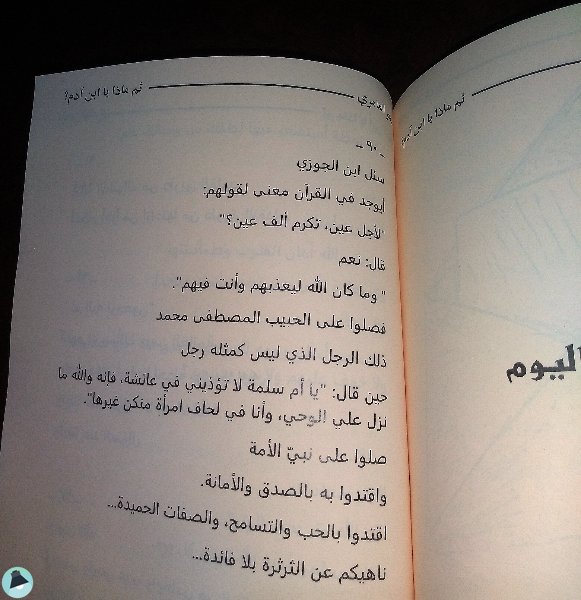 ثم ماذا يا ابن آدم؟
- ٩٠ -
سئل ابن الجوزي
أيوجد في القرآن معنى لقولهم:
"لأجل عين، تكرم ألف عين؟"
قال: نعم
"وما كان الله ليعذبهم وأنت فيهم".
فصلوا على الحبيب المصطفى محمد
ذلك الرجل الذي ليس كمثله رجل
حين قال: "يا أم سلمة لا تؤذيني في عائشة، فإنه والله ما
نزل علي الوحي، وأنا في لحاف امرأة منكن غيرها".
صلوا على نبيّ الأمة
واقتدوا به بالصدق والأمانة.
اقتدوا بالحب والتسامح، والصفات الحميدة...
ناهيكم عن الثرثرة بلا فائدة...
ثم ماذا يا ابن آدم؟
اليوم